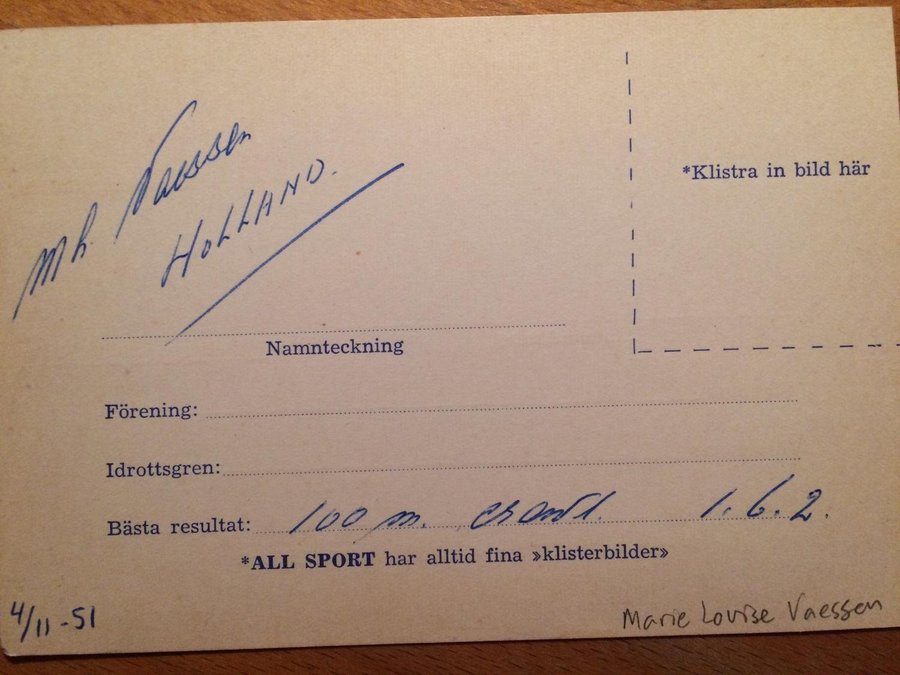 Mh. Vaessen
HOLLAND.
*Klistra in bild här
Namnteckning
Förening:
Idrottsgren:
Bästa resultat: 100 m. crawl. 1.6.2.
*ALL SPORT har alltid fina »klisterbilder»
4/11-51
Marie Louise Vaessen